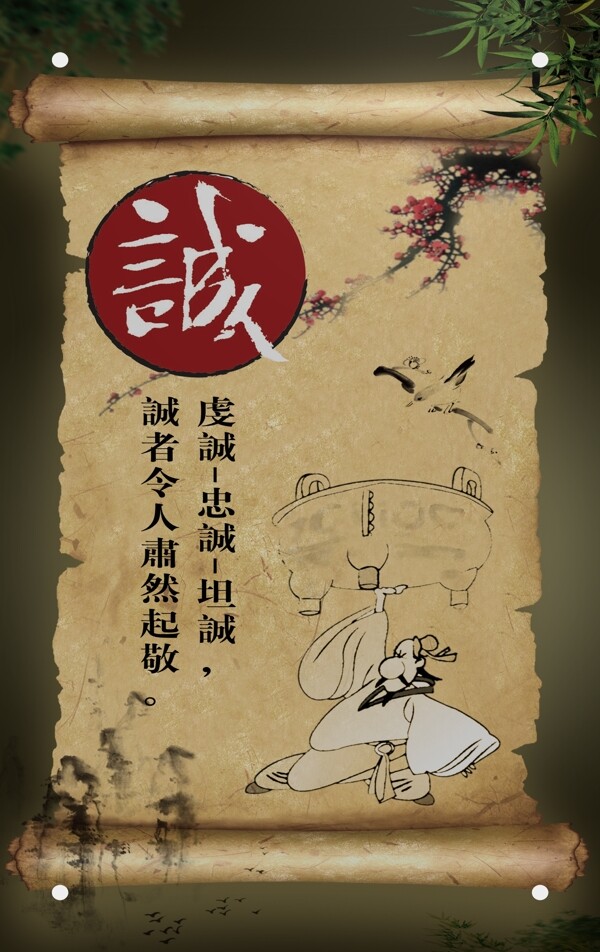 誠
虔誠-忠誠-坦誠，
誠者令人肅然起敬。